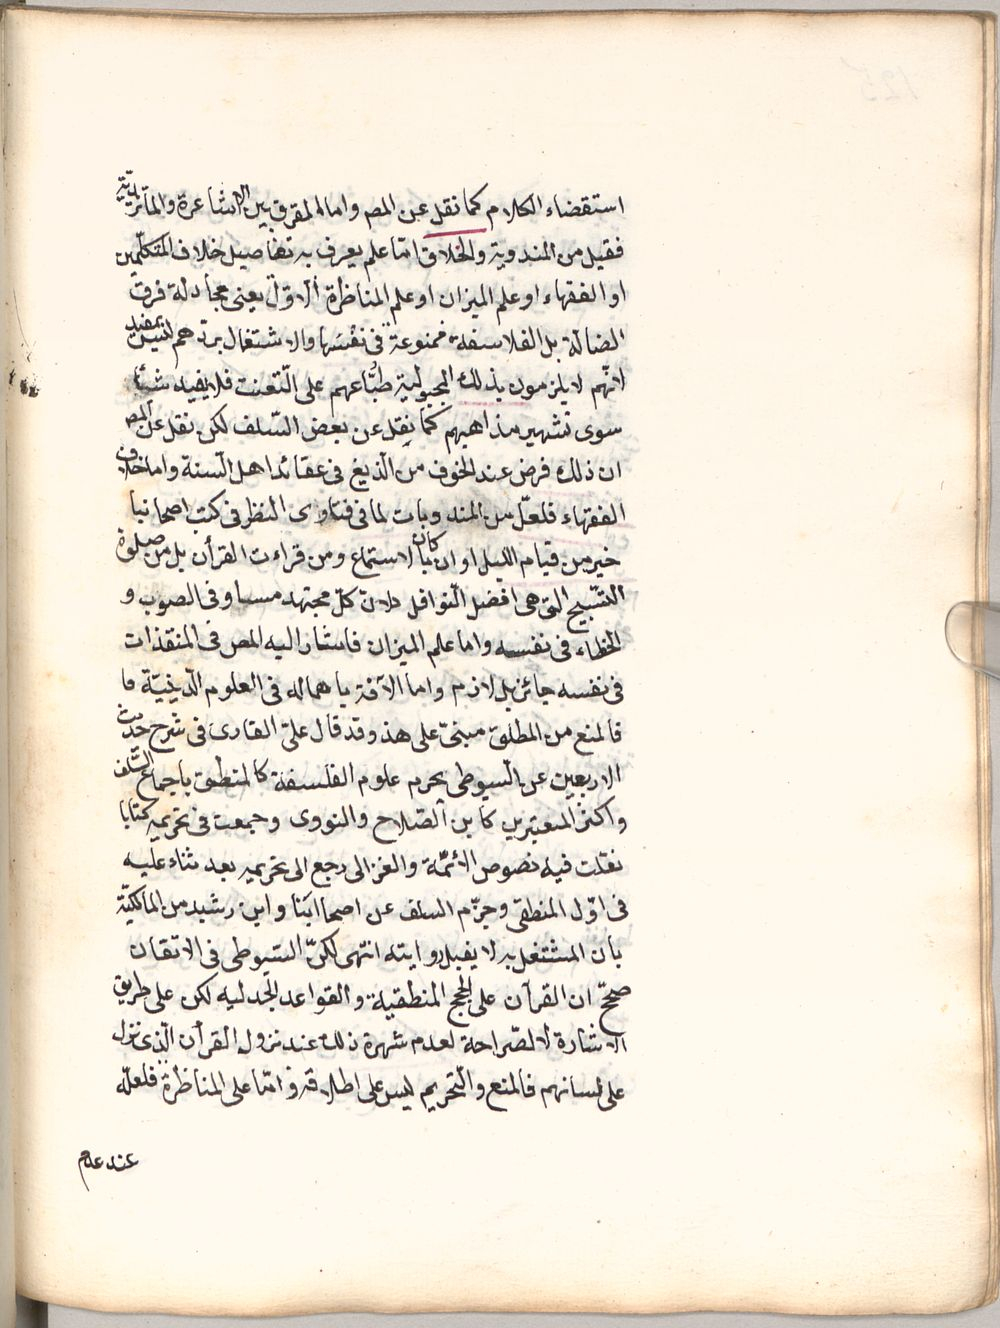 استقضاء الكلام كما نقل عن المص واما المفرق بين الاشاعرة والماتريدية
فقيل من المندوبة والخلاق اما علم يعرف به تفاصيل خلاف المتكلمين
او الفقهاء او علم الميزان او علم المناظرة الاول يعنى مجادلة فرق
الضالة بل الفلاسفة فممنوعة فى نفسها والاشتغال بردهم ليس بمفيد
لانهم لا يلزمون بذلك لمجبولية طباعهم على التعنت فلا يفيد شيئا
سوى تشهير مذاهبهم كما نقل عن بعض السلف لكن نقل عن المص
ان ذلك فرض عند الخوف من الزيغ فى عقائد اهل السنة واما خلاف
الفقهاء فلعل من المندوبات لما فى فتاوى النظر فى كتب اصحابنا
خير من قيام الليل وان كان بالاستماع ومن قراءت القرآن بل من صلوة
التسبيح التى هى افضل النوافل ولان كل مجتهد مساو فى الصوب و
الخطاء فى نفسه واما علم الميزان فاشار اليه المص فى المنقذات
فى نفسه جائز بل لازم واما الآفة باهماله فى العلوم الدينية ما
فالمنع من المطلق مبنى على هذ وقد قال على القارى فى شرح حديث
الاربعين عن السيوطى يحرم علوم الفلسفة كالمنطق باجماع السلف
واكثر المعتبرين كابن الصلاح والنووى وجمعت فى تحريمه كتابا
نقلت فيه نصوص الائمة والغزالى رجع الى تحريمه بعد ثناء عليه
فى اول المنطقى وجزم السلف عن اصحاابنا وابن رشيد من المالكية
بان المشتغل به لا يقبل روايته انتهى لكن السيوطى فى الاتقان
صحح ان القرآن على الحجج المنطقية والقواعد الجدليه لكن على طريق
الاشارة لا الصراحة لعدم شهرة ذلك عند نزول القرآن الذى نزل
على لسانهم فالمنع والتحريم ليس على اطلاقه واما على المناظرة فلعله
عند عدم